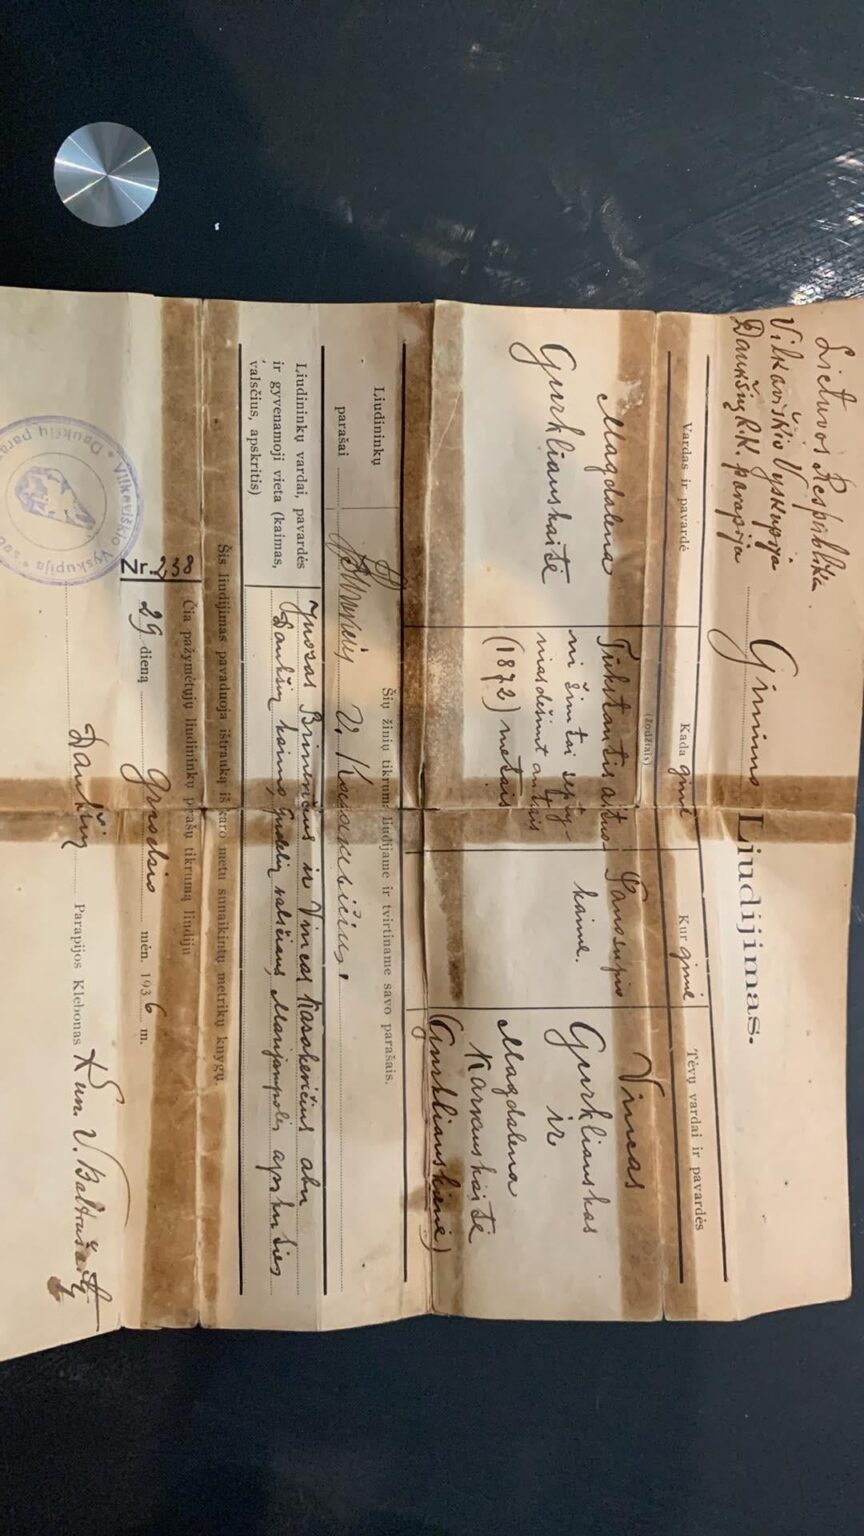 Lietuvos Respublika
Vilkaviškio Vyskupija
Daukšių R.K. parapija
Gimimo Liudijimas.
Vardas ir pavardė
Kada gimė
(žodžiais)
Kur gimė
Tėvų vardai ir pavardės
Magdalena
Gurkliauskaitė
Tūkstantis aštuo-
ni šimtai septy-
niasdešimt antrais
(1872) metais
kaime.
Vincas
Gurkliauskas
ir
Magdalena
Karvauskaitė
(Gurkliauskienė)
Šių žinių tikrumą liudijame ir tvirtiname savo parašais.
Liudininkų
parašai
V. Kasakevičius.
Liudininkų vardai, pavardės
ir gyvenamoji vieta (kaimas,
valsčius, apskritis)
Juozas ir Vincas Kasakevičius abu
Daukšių kaimo, Gudelių valsčiaus, Marijampolės apskrities
Šis liudijimas pavaduoja ištrauką iš karo metu sunaikintų metrikų knygų.
Čia pažymėtųjų liudininkų parašų tikrumą liudiju
Nr. 238
29 dieną Gruodžio mėn. 1936 m.
Daukšių Parapijos Klebonas Kun. V. Baltrušaitis
Vilkaviškio Vyskupija
Daukšių para